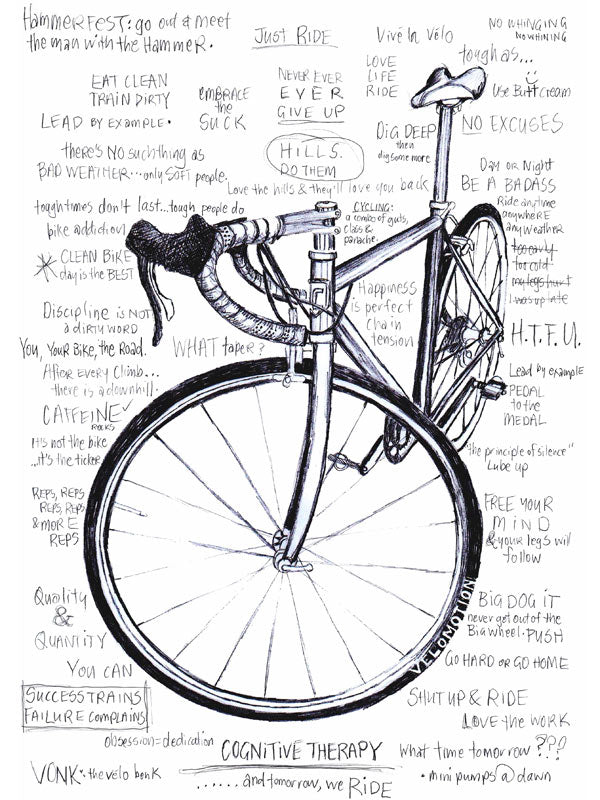 HAMMERFEST: go out & meet
the man with the HAMMER.
JUST RIDE
Vive le Vélo
NO WHINGING
NO WHINING
tough as...
LOVE
LIFE
RIDE
NEVER EVER
EVER
GIVE UP
EAT CLEAN
TRAIN DIRTY
EMBRACE
the
SUCK
Use Butt cream
LEAD BY EXAMPLE.
DIG DEEP
then
dig some more
NO EXCUSES
HILLS.
DO THEM
there's NO such thing as
BAD WEATHER...only SOFT people.
Love the hills & they'll love you back
Day or Night
BE A BADASS
Ride anytime
anywhere
any weather
too early
too cold
my legs hurt
I was up late
tough times don't last...tough people do
bike addiction
CYCLING:
a combo of guts,
class &
panache.
CLEAN BIKE
day is the BEST
Happiness
is perfect
chain
tension
Discipline is NOT
a DIRTY WORD
You, Your Bike, the Road.
WHAT taper?
H.T.F.U.
After every climb...
there is a downhill.
Lead by example
PEDAL
to the
MEDAL
CAFFEINE
ROCKS
It's not the bike
...it's the ticker
"the principle of silence"
Lube up
REPS, REPS
REPS, REPS
& MORE
REPS
FREE YOUR
MIND
& your legs will
follow
Quality
&
QUANTITY
BIG DOG IT
never get out of the
Big wheel. PUSH
VELOMOTION
YOU CAN
GO HARD OR GO HOME
SUCCESS TRAINS
FAILURE COMPLAINS
SHUT UP & RIDE
LOVE the WORK
obsession=dedication
COGNITIVE THERAPY
What time tomorrow ???
VONK: the velo bonk
......and tomorrow, we RIDE
• mini pumps @ dawn